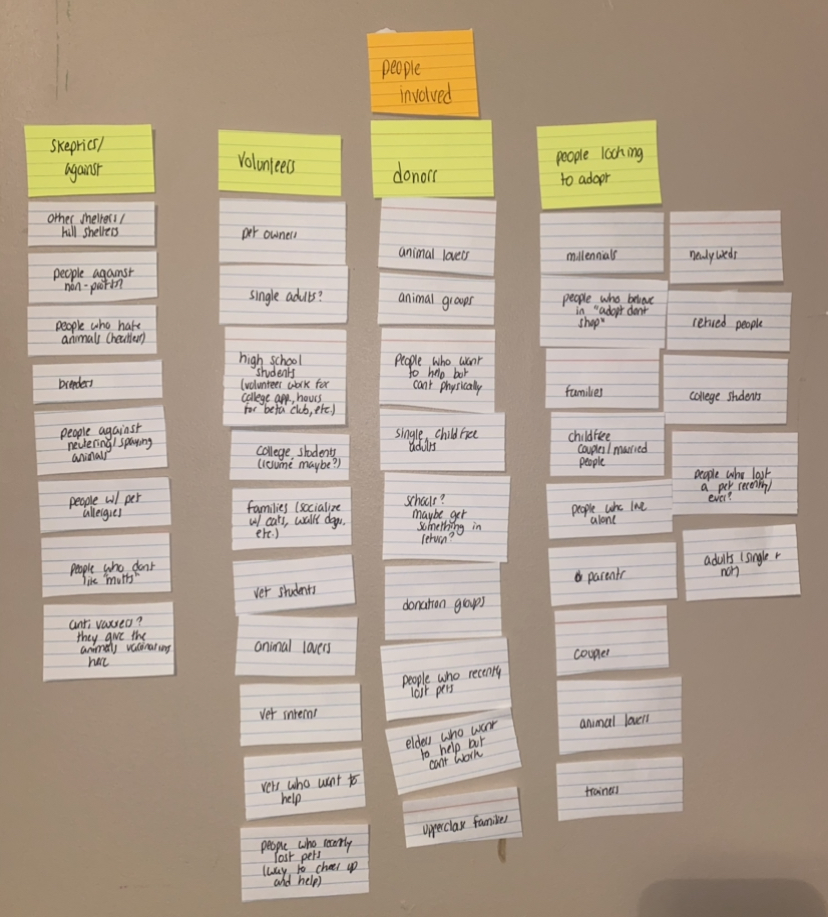 people
involved
skeptics/
against
other shelters/
kill shelters
people against
non-profits?
people who hate
animals (heartless)
breeders
people against
neutering/spaying
animals
people w/ pet
allergies
people who dont
like "mutts"
anti vaxxers?
they give the
animals vaccinations
here
Volunteers
pet owners
single adults?
high school
students
(volunteer work for
college app, hours
for beta club, etc.)
college students
(resume maybe?)
families (socialize
w/ cats, walk dogs,
etc.)
vet students
animal lovers
vet interns
vets who want to
help
people who recently
lost pets
(way to cheer up
and help)
donors
animal lovers
animal groups
People who want
to help but
cant physically
single childfree
adults
schools?
maybe get
something in
return?
donation groups
people who recently
lost pets
elders who want
to help but
cant work
upperclass families
people looking
to adopt
millennials
people who believe
in "adopt dont
shop"
families
childfree
couples/married
people
people who live
alone
parents
couples
animal lovers
trainers
newlyweds
retired people
college students
people who lost
a pet recently/
ever?
adults (single +
not)